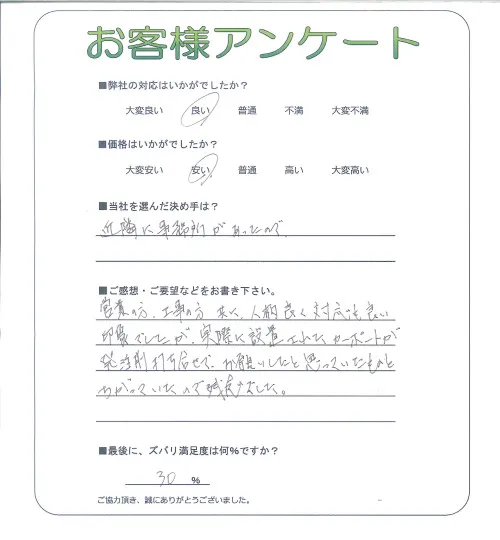 お客様アンケート
■弊社の対応はいかがでしたか？
大変良い 良い 普通 不満 大変不満
■価格はいかがでしたか？
大変安い 安い 普通 高い 大変高い
■当社を選んだ決め手は？
近隣に事務所があったので、
■ご感想・ご要望などをお書き下さい。
営業の方、工事の方 共に、人柄良く対応も良い
印象でしたが、実際に設置されたカーポートが
発注前打合せで、お願いしたと思っていたものと
ちがっていたので残念でした。
■最後に、ズバリ満足度は何％ですか？
30 ％
ご協力頂き、誠にありがとうございました。